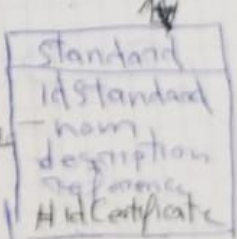 Standard
idStandard
nom
description
reference
#idCertificate